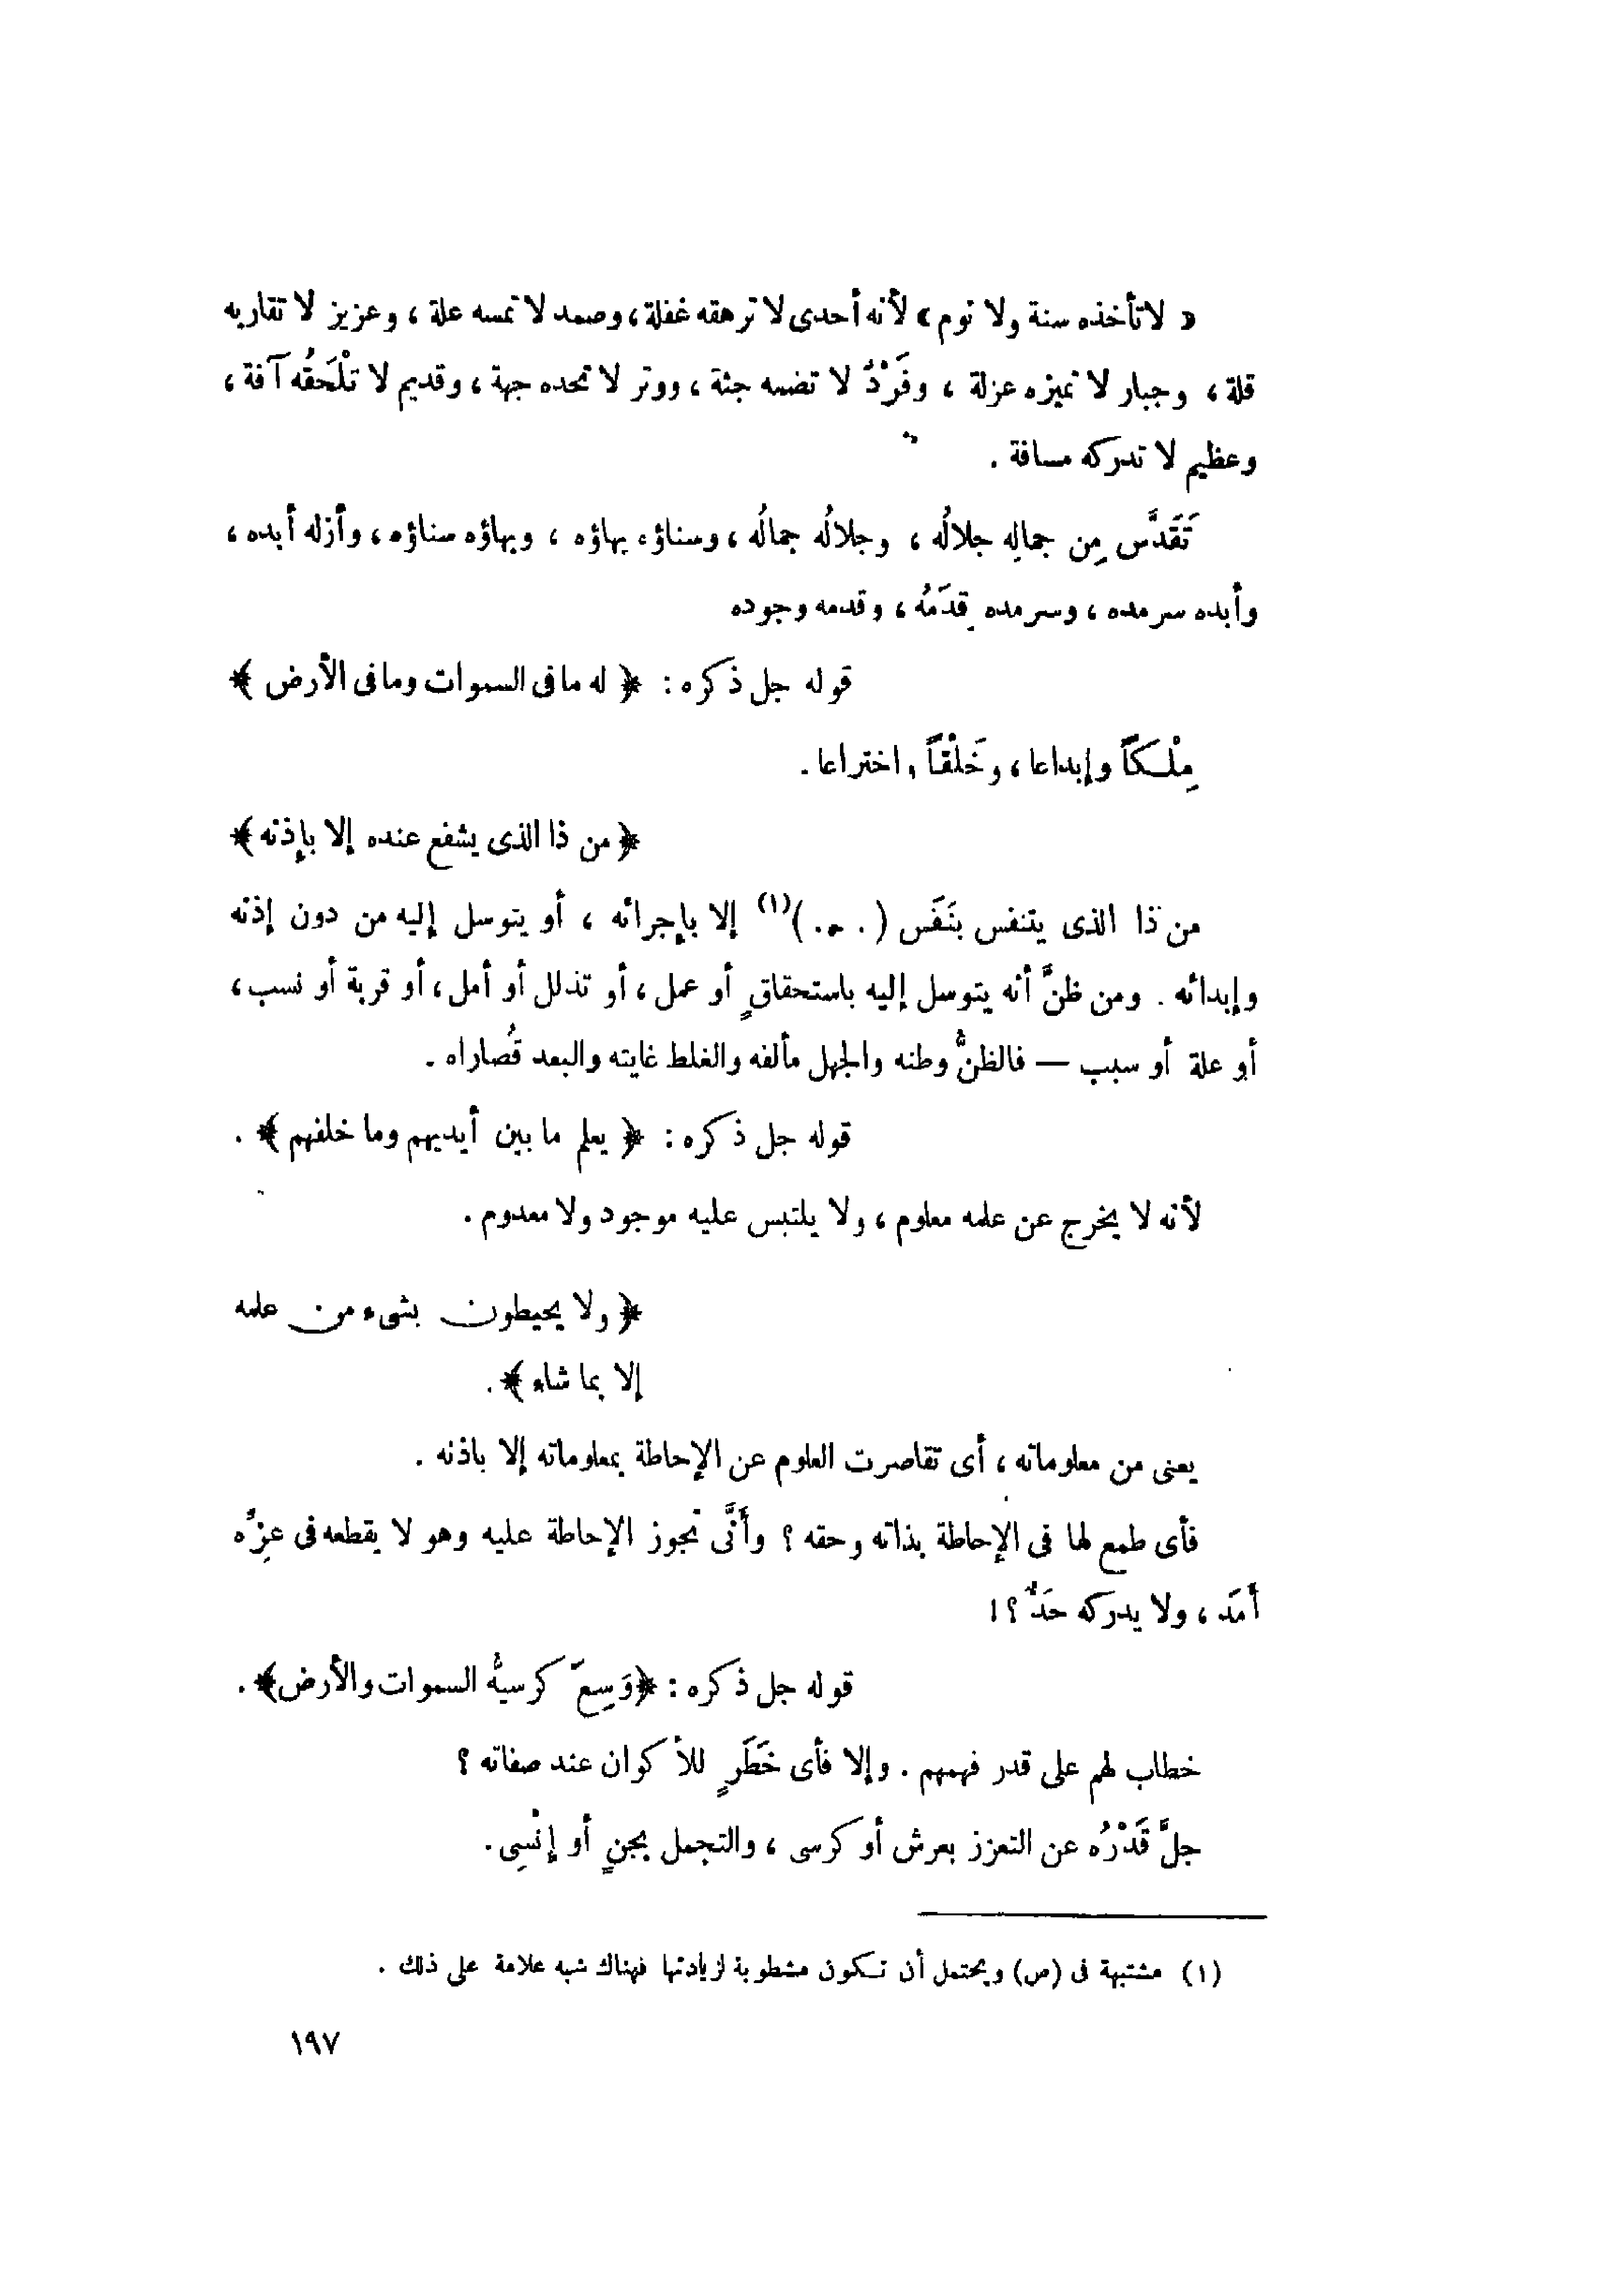 « لا تأخذه سنة ولا نوم » لأنه أحدى لا ترهقه غفلة ، وصمد لا تمسه علة ، وعزيز لا تقاربه
قلة ، وجبار لا تميزه عزلة ، وفَرْدٌ لا تضمه جثة ، ووتر لا تحده جهة ، وقديم لا تلْحَقُه آفة ،
وعظيم لا تدركه مسافة .
تَقَدَّس مِن جمالِه جلالُه ، وجلالُه جمالُه ، وسناؤه بهاؤه ، وبهاؤه سناؤه ، وأزله أبده ،
وأبده سرمده ، وسرمده قِدَمُه ، وقدمه وجوده
قوله جل ذكره : ﴿ له ما فى السموات وما فى الأرض ﴾
مِلْـكاً وإبداعا ، وخَلْقاً واختراعا .
﴿ من ذا الذى يشفع عنده إلا بإذنه ﴾
من ذا الذى يتنفس بنَفَس ( . . . )(١) إلا بإجرائه ، أو يتوسل إليه من دون إذنه
وإبدائه . ومن ظنَّ أنه يتوسل إليه باستحقاقٍ أو عمل ، أو تذلل أو أمل ، أو قربة أو نسب ،
أو علة أو سبب — فالظنُّ وطنه والجهل مألفه والغلط غايته والبعد قُصاراه .
قوله جل ذكره : ﴿ يعلم ما بين أيديهم وما خلفهم ﴾ .
لأنه لا يخرج عن علمه معلوم ، ولا يلتبس عليه موجود ولا معدوم .
﴿ ولا يحيطون بشىء من علمه
إلا بما شاء ﴾ .
يعنى من معلوماته ، أى تقاصرت العلوم عن الإحاطة بمعلوماته إلا باذنه .
فأى طمع لها فى الإحاطة بذاته وحقه ؟ وأَنَّى تجوز الإحاطة عليه وهو لا يقطعه فى عِزِّه
أمَد ، ولا يدركه حَدٌّ ؟!
قوله جل ذكره : ﴿وَسِعَ كرسيُّه السموات والأرض﴾ .
خطاب لهم على قدر فهمهم . وإلا فأى خَطَرٍ للأكوان عند صفاته ؟
جلَّ قَدْرُه عن التعزز بعرش أو كرسى ، والتجمل بجنٍ أو إنْسِى .
(١) مشتبهة فى (ص) ويحتمل أن تـكون مشطوبة لزيادتها فهناك شبه علامة على ذلك .
١٩٧